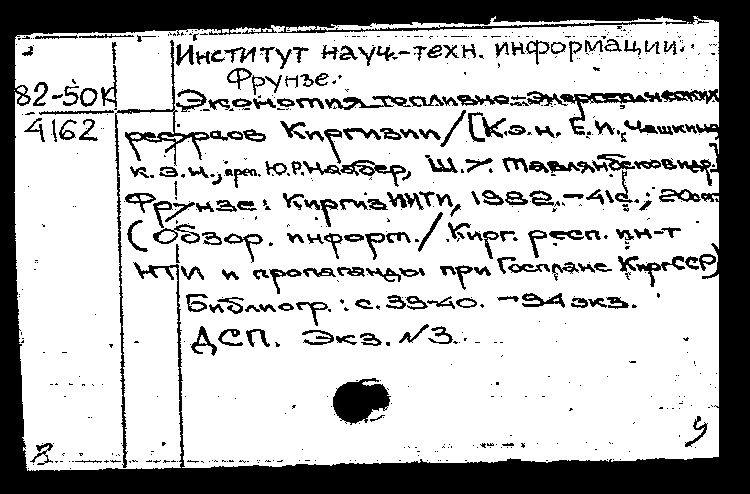 Институт науч.-техн. информации.
Фрунзе.
82-50К
Экономия топливно-энергетических
4162
ресурсов Киргизии / [К.э.н. Е.И.
к.э.н., преп. Ю.Р. Ш.У.
Фрунзе: КиргизИНТИ, 1982. - 41с., 20см
(Обзор. информ. / Кирг. респ. ин-т
НТИ и пропаганды при Госплане КиргССР)
Библиогр.: с. 39-40. - 94 экз.
ДСП. Экз. №3.
8